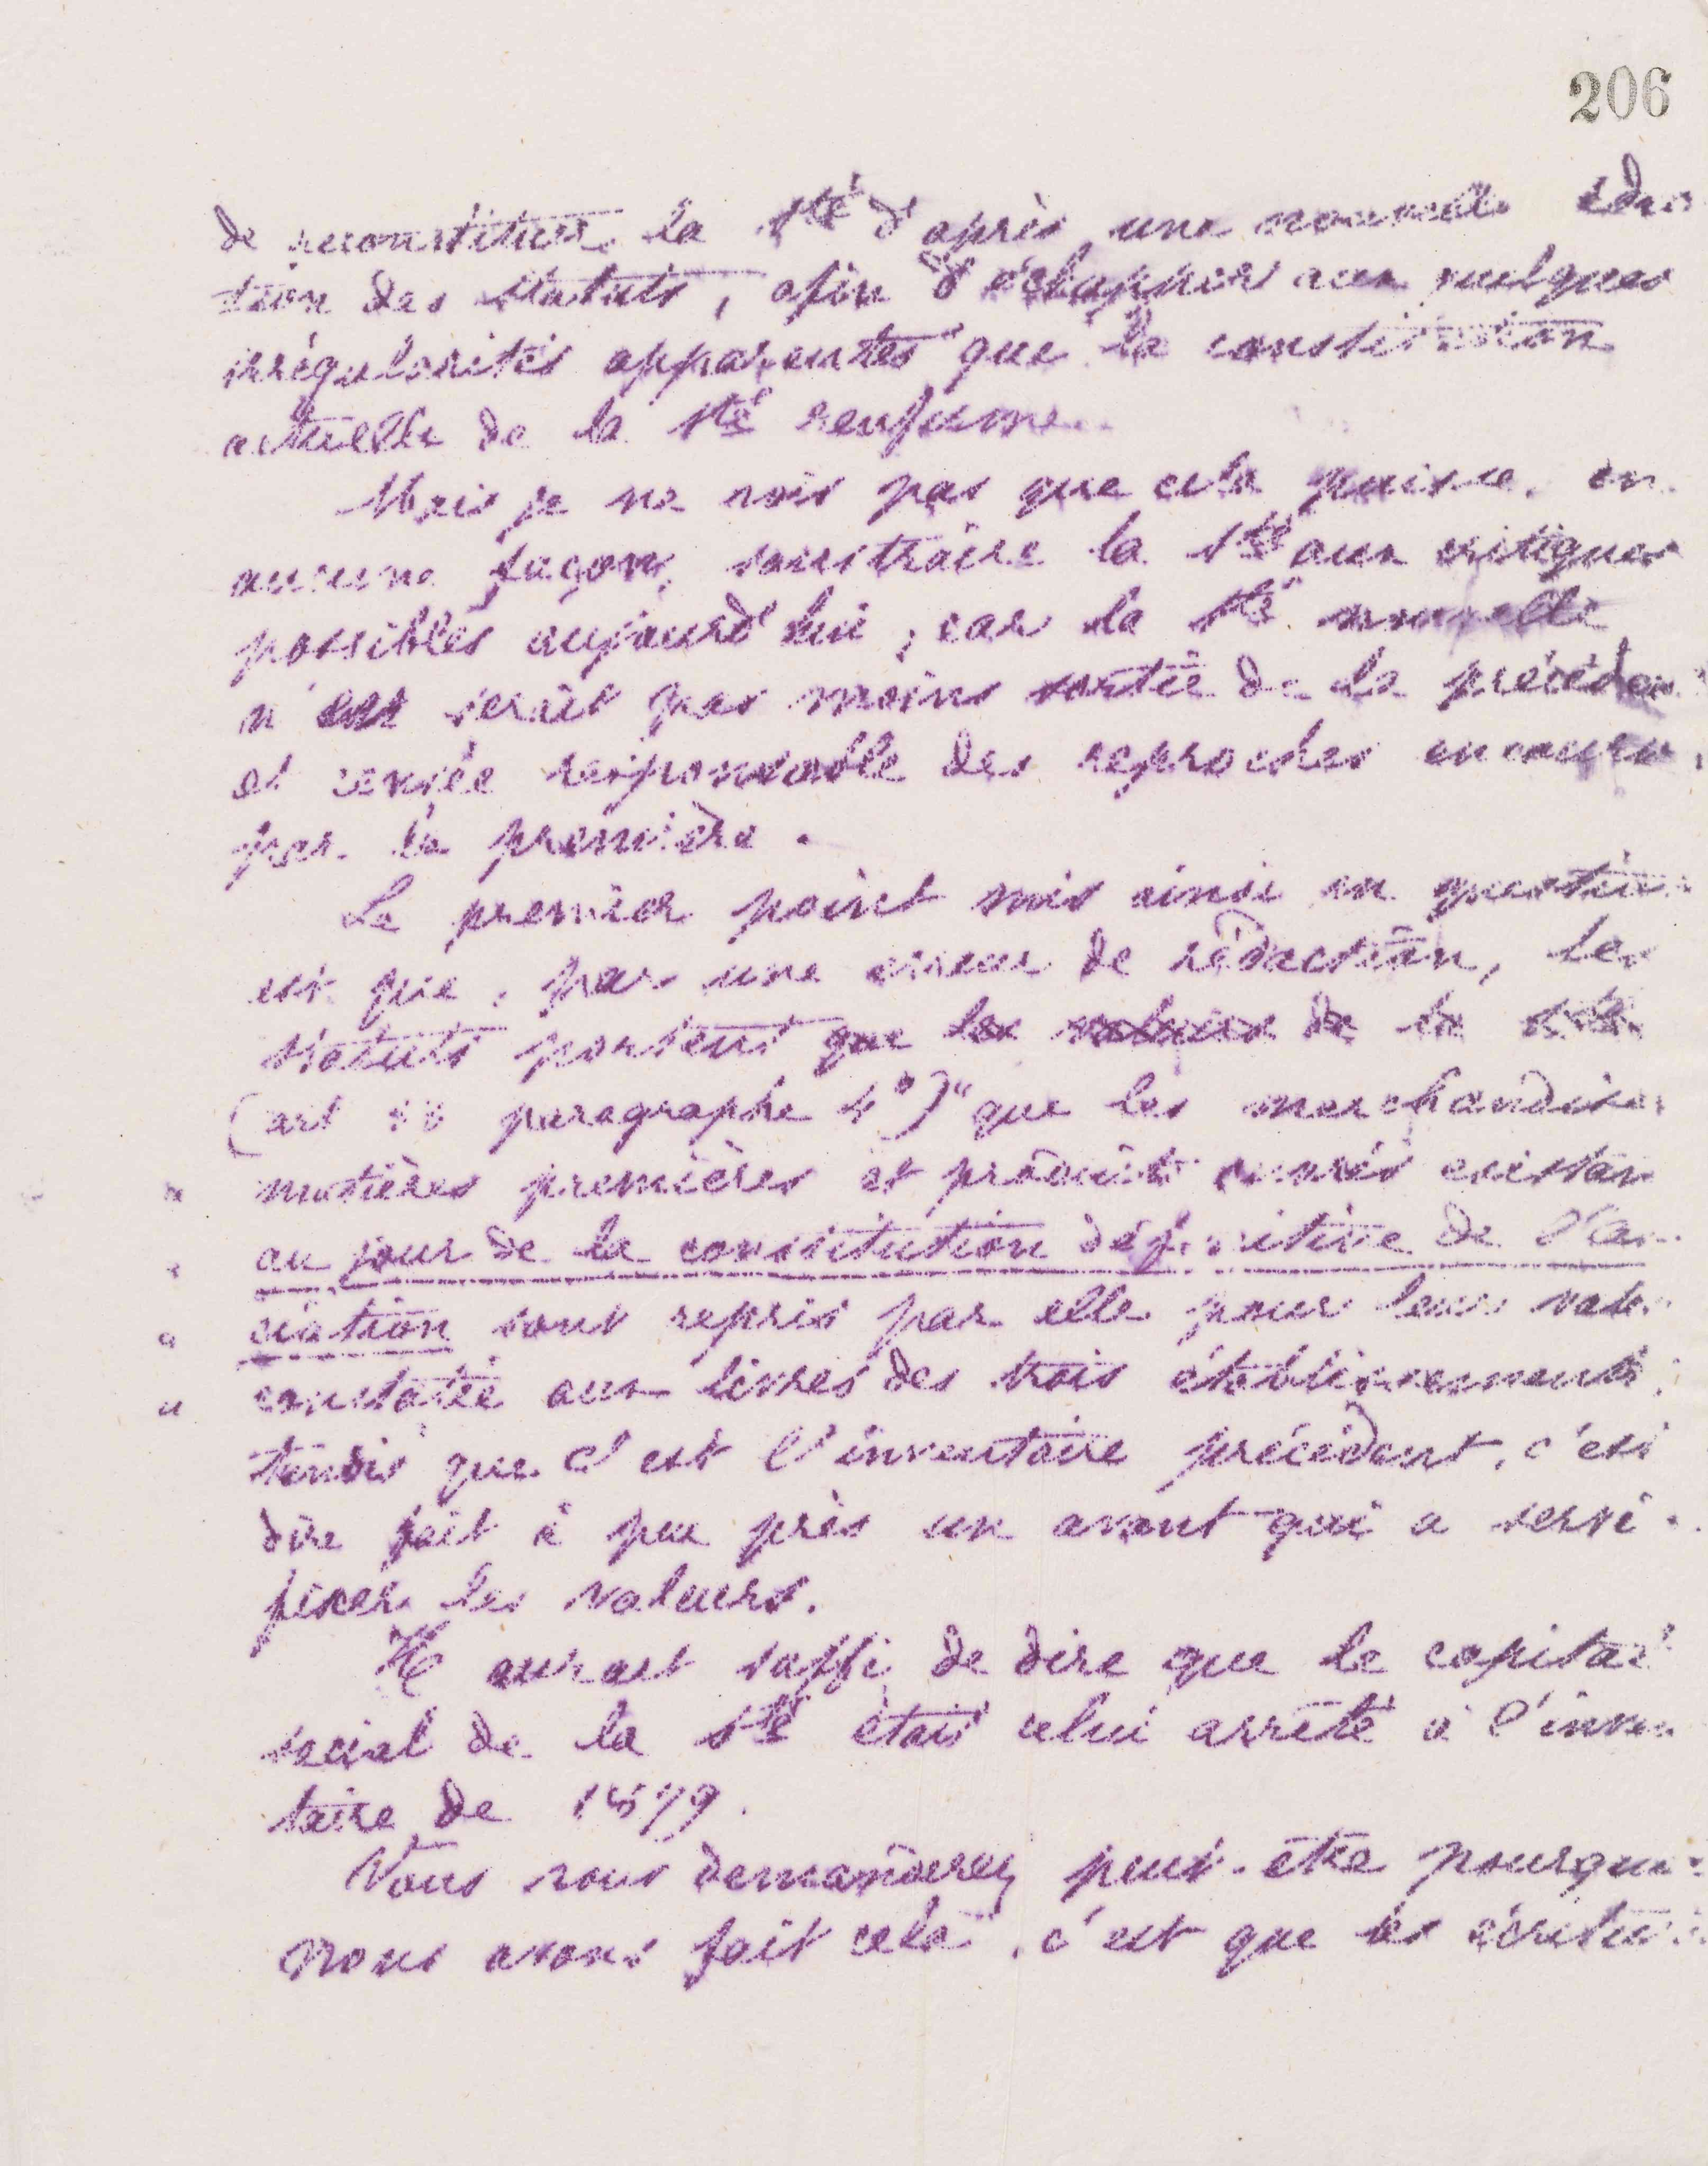 206
de reconstituer la Sté d'après une nouvelle édi
tion des statuts, afin d'échapper aux quelques
irrégularités apparentes que la constitution
actuelle de la Sté renferme.
Mais je ne vois pas que cela puisse, en
aucune façon, soustraire la Sté aux critiques
possibles aujourd'hui, car la Sté nouvelle
n'en serait pas moins sortie de la précéden
et censée responsable des reproches encourus
par la première.
Le premier point mis ainsi en question
est que, par une erreur de rédaction, les
statuts portent que les valeurs de la Sté
(art paragraphe 4°) "que les marchandises
" matières premières et produits ouvrés existan
" au jour de la constitution définitive de l'As
" ciation sont repris par elle pour leur valeur
" constatée aux livres des trois établissements,
tandis que c'est l'inventaire précédent, c'est
dire fait à peu près un avant qui a servi
fixer les valeurs.
Il aurait suffi de dire que le capital
social de la Sté était celui arrêté à l'inven
taire de 1879.
Vous nous demanderez peut-être pourquoi
nous avons fait cela, c'est que les écritu